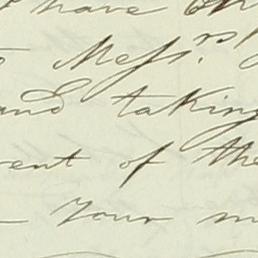 have
Messrs.
and taking
of the
Your